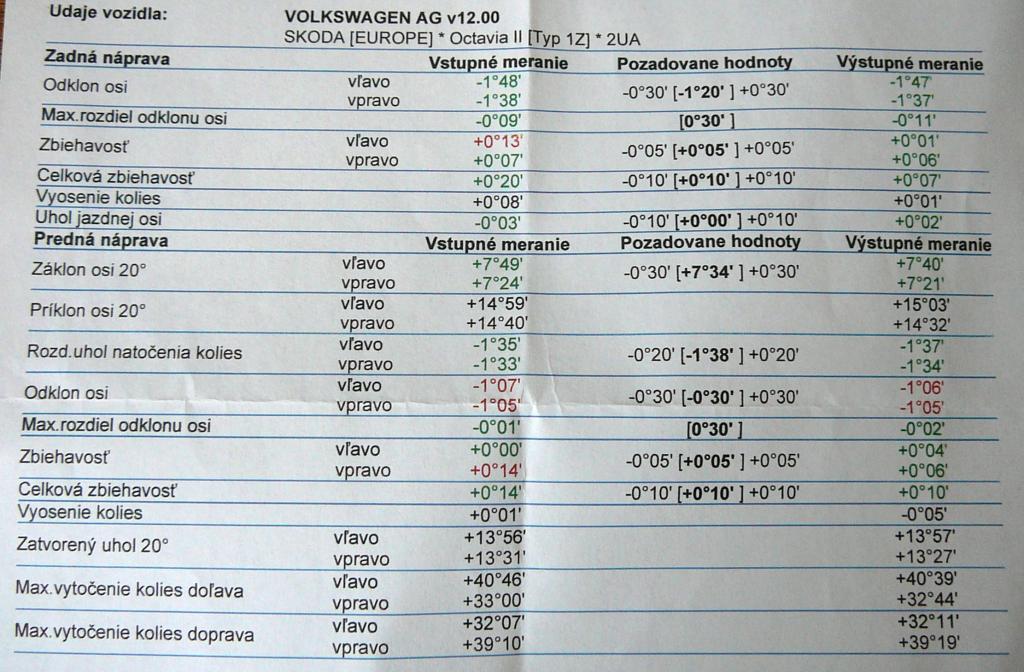 Udaje vozidla: VOLKSWAGEN AG v12.00
SKODA [EUROPE] * Octavia II [Typ 1Z] * 2UA
Zadná náprava Vstupné meranie Pozadovane hodnoty Výstupné meranie
Odklon osi vľavo -1°48' -0°30' [-1°20' ] +0°30' -1°47'
vpravo -1°38' -1°37'
Max.rozdiel odklonu osi -0°09' [0°30' ] -0°11'
Zbiehavosť vľavo +0°13' -0°05' [+0°05' ] +0°05' +0°01'
vpravo +0°07' +0°06'
Celková zbiehavosť +0°20' -0°10' [+0°10' ] +0°10' +0°07'
Vyosenie kolies +0°08' +0°01'
Uhol jazdnej osi -0°03' -0°10' [+0°00' ] +0°10' +0°02'
Predná náprava Vstupné meranie Pozadovane hodnoty Výstupné meranie
Záklon osi 20° vľavo +7°49' -0°30' [+7°34' ] +0°30' +7°40'
vpravo +7°24' +7°21'
Príklon osi 20° vľavo +14°59' +15°03'
vpravo +14°40' +14°32'
Rozd.uhol natočenia kolies vľavo -1°35' -0°20' [-1°38' ] +0°20' -1°37'
vpravo -1°33' -1°34'
Odklon osi vľavo -1°07' -0°30' [-0°30' ] +0°30' -1°06'
vpravo -1°05' -1°05'
Max.rozdiel odklonu osi -0°01' [0°30' ] -0°02'
Zbiehavosť vľavo +0°00' -0°05' [+0°05' ] +0°05' +0°04'
vpravo +0°14' +0°06'
Celková zbiehavosť +0°14' -0°10' [+0°10' ] +0°10' +0°10'
Vyosenie kolies +0°01' -0°05'
Zatvorený uhol 20° vľavo +13°56' +13°57'
vpravo +13°31' +13°27'
Max.vytočenie kolies doľava vľavo +40°46' +40°39'
vpravo +33°00' +32°44'
Max.vytočenie kolies doprava vľavo +32°07' +32°11'
vpravo +39°10' +39°19'